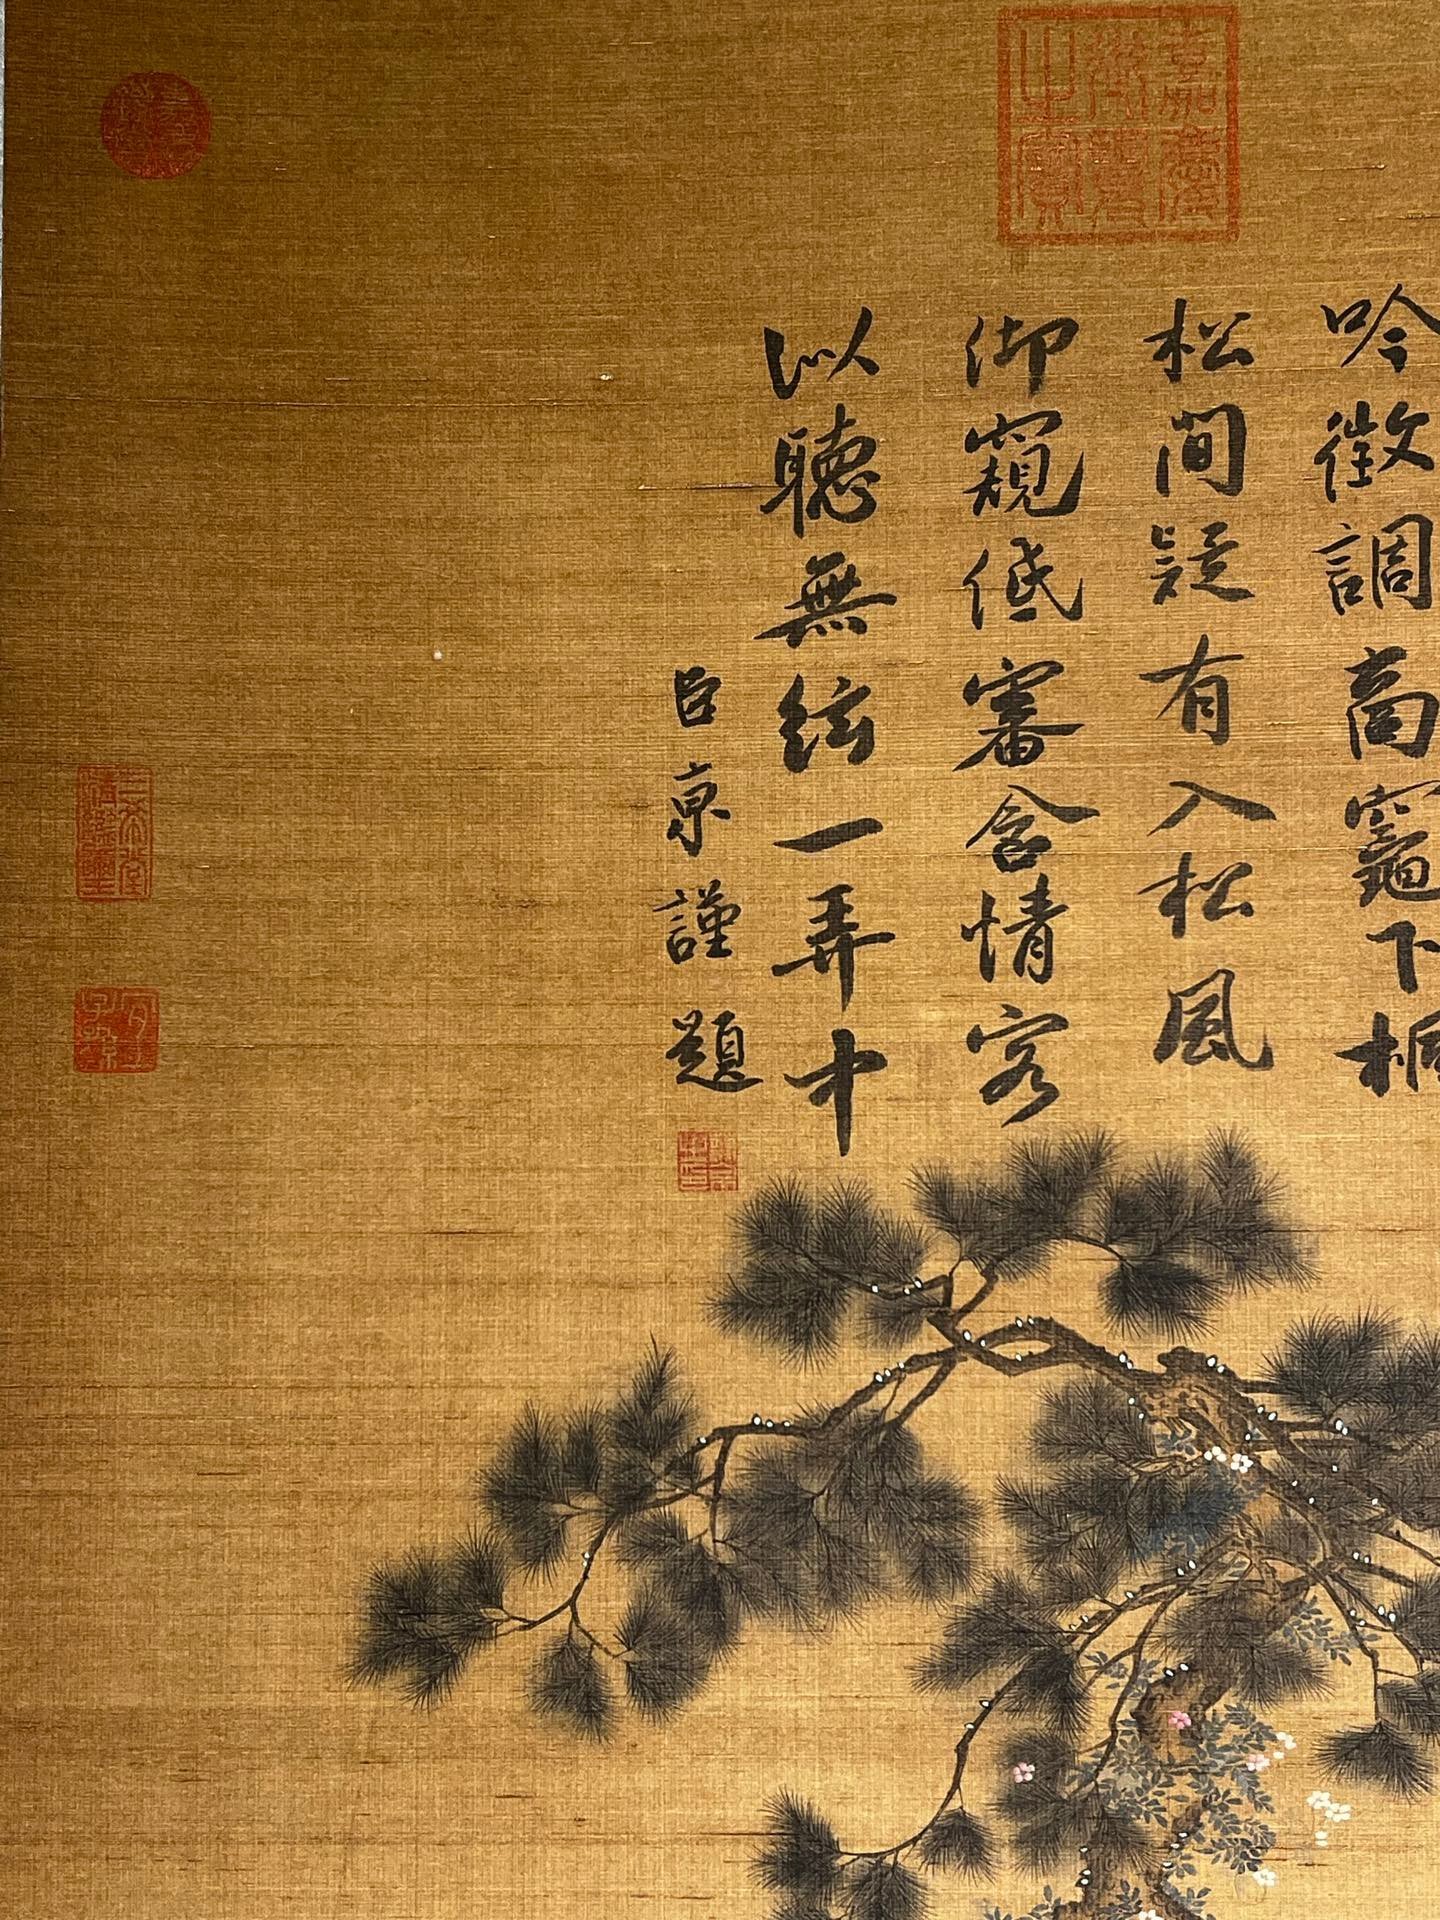 嘉慶御覽之寶
吟徵調商竈下桐
松間疑有入松風
仰窺低審含情客
以聽無絃一弄中
臣京謹題
三希堂精鑑璽
宜子孫